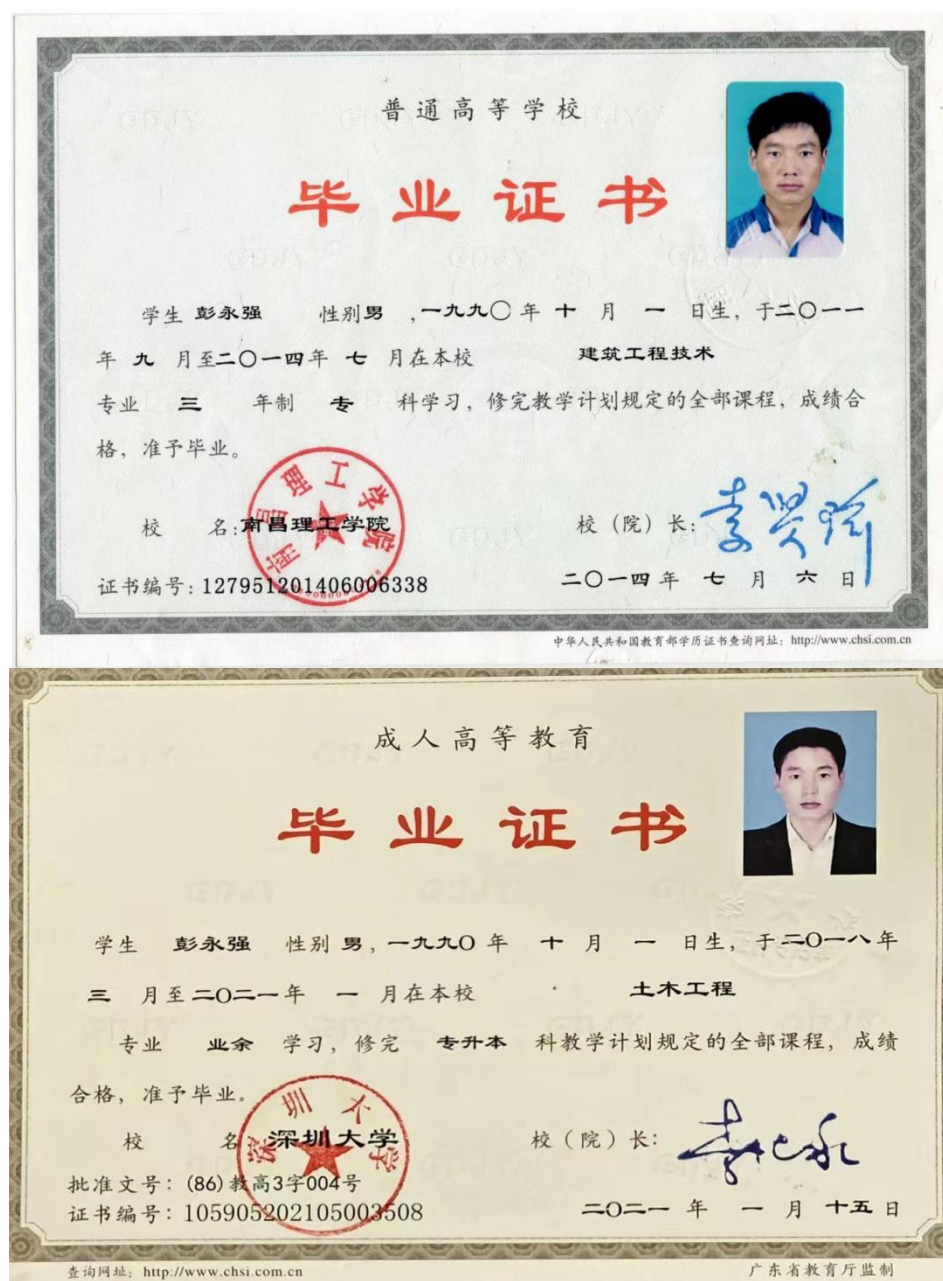 普通高等学校
毕业证书
学生 彭永强 性别 男 ,一九九〇 年 十 月 一 日生，于二〇一一
年 九 月至二〇一四年 七 月在本校 建筑工程技术
专业 三 年制 专 科学习，修完教学计划规定的全部课程，成绩合
格，准予毕业。
校 名:南昌理工学院 校（院）长:
证书编号:127951201406006338 二〇一四 年 七 月 六 日
中华人民共和国教育部学历证书查询网址：http://www.chsi.com.cn
成人高等教育
毕业证书
学生 彭永强 性别 男，一九九〇 年 十 月 一 日生，于二〇一八年
三 月至二〇二一年 一 月在本校 土木工程
专业 业余 学习，修完 专升本 科教学计划规定的全部课程，成绩
合格，准予毕业。
校 名 深圳大学 校（院）长：
批准文号：(86)教高3字004号
证书编号：105905202105003508 二〇二一 年 一 月 十五 日
查询网址：http://www.chsi.com.cn 广东省教育厅监制